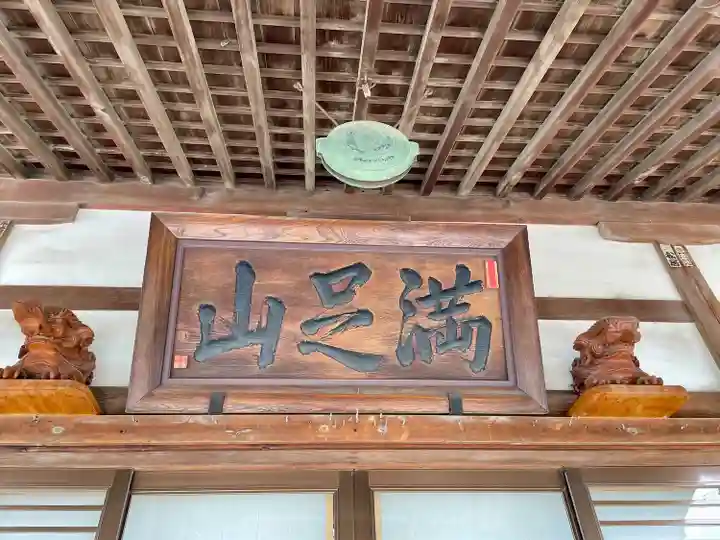 満足山